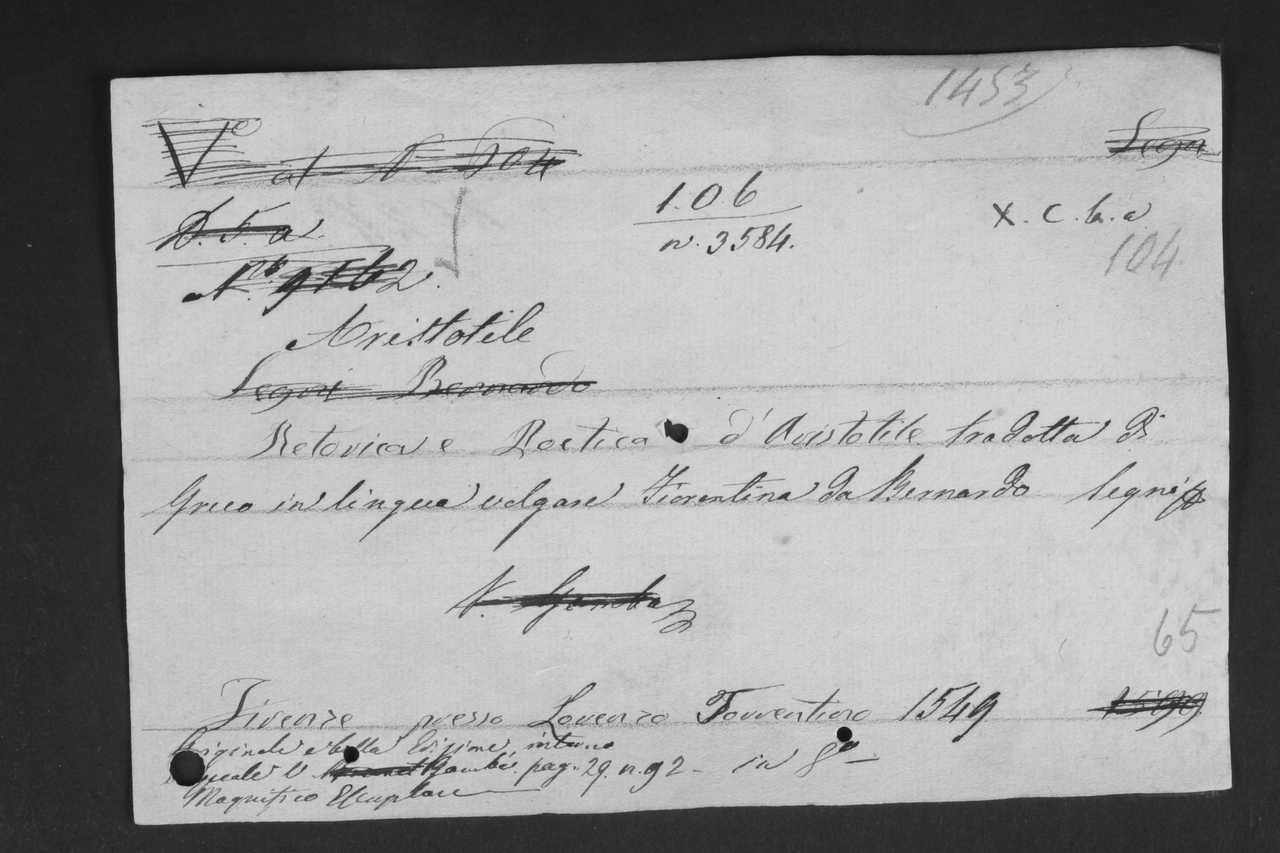 1453
V.o at N. 504
Segni
D. F. a
1.0.6
X. C. b. a
n. 3584.
104
N. 9162.
Aristotile
Segni Bernardo
Retorica e Poetica d'Aristotile tradotta di
Greco in lingua volgare Fiorentina da Bernardo Segni
V. Gamba
65
Firenze presso Lorenzo Torrentino 1549
Originale e bella Edizione, intorno
V. Gamba. pag. 29. n. 92 - in 8.o
Magnifico Esemplare